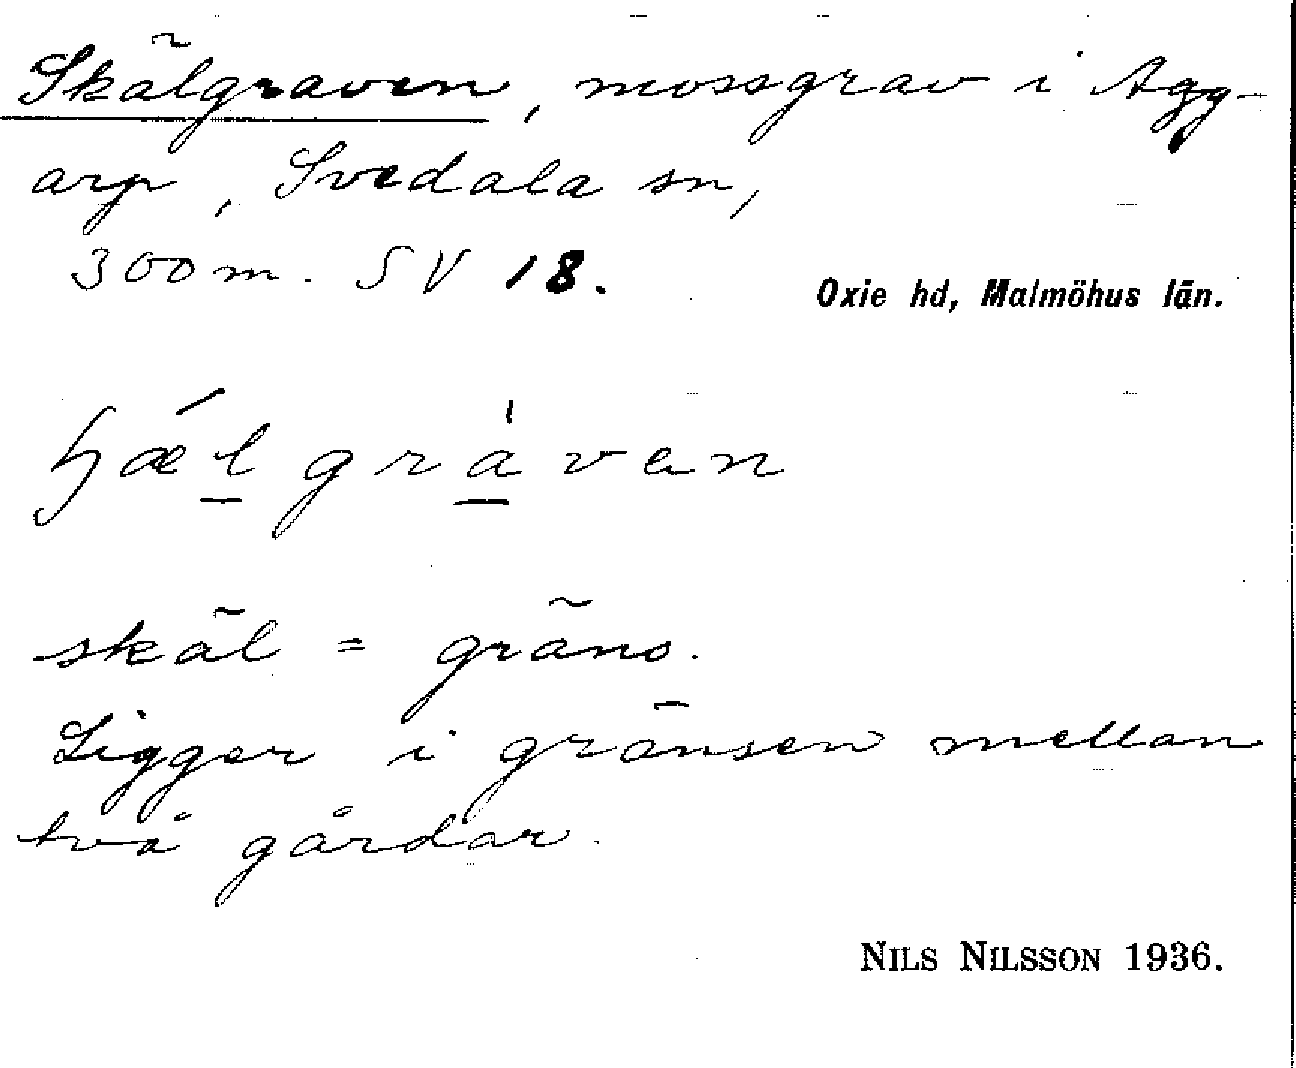 Skälgraven, mossgrav i Agg-
arp, Svedala sn,
300 m. SV 18.
Oxie hd, Malmöhus län.
ɧæ´l gràven
skäl = gräns.
Ligger i gränsen mellan
två gårdar.
NILS NILSSON 1936.